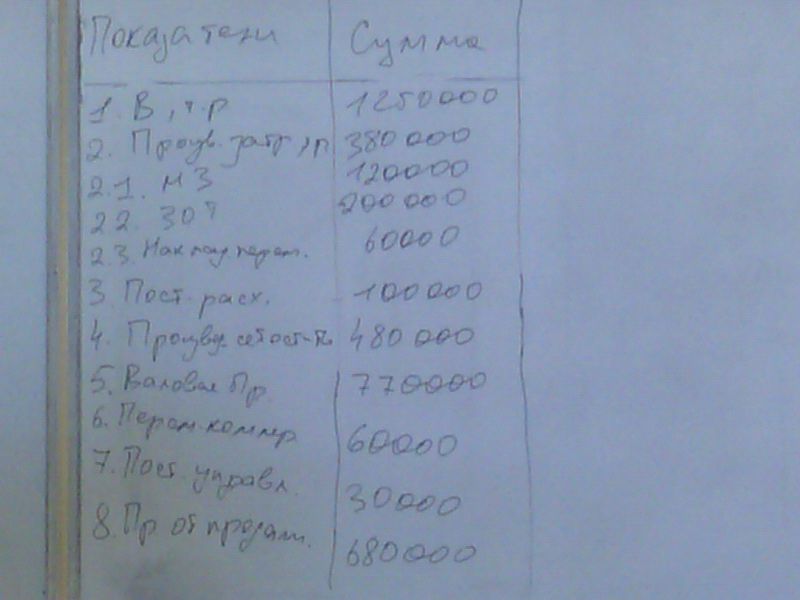 Показатели Сумма
1. В, т.р 1250000
2. Произв. затр, п. 380000
2.1. МЗ 120000
2.2. ЗОТ 200000
2.3. Наклад перем. 60000
3. Пост. расх. 100000
4. Произвд себост-ть 480000
5. Валовая Пр. 770000
6. Перем. коммер 60000
7. Пост. управл. 30000
8. Пр от продажи. 680000